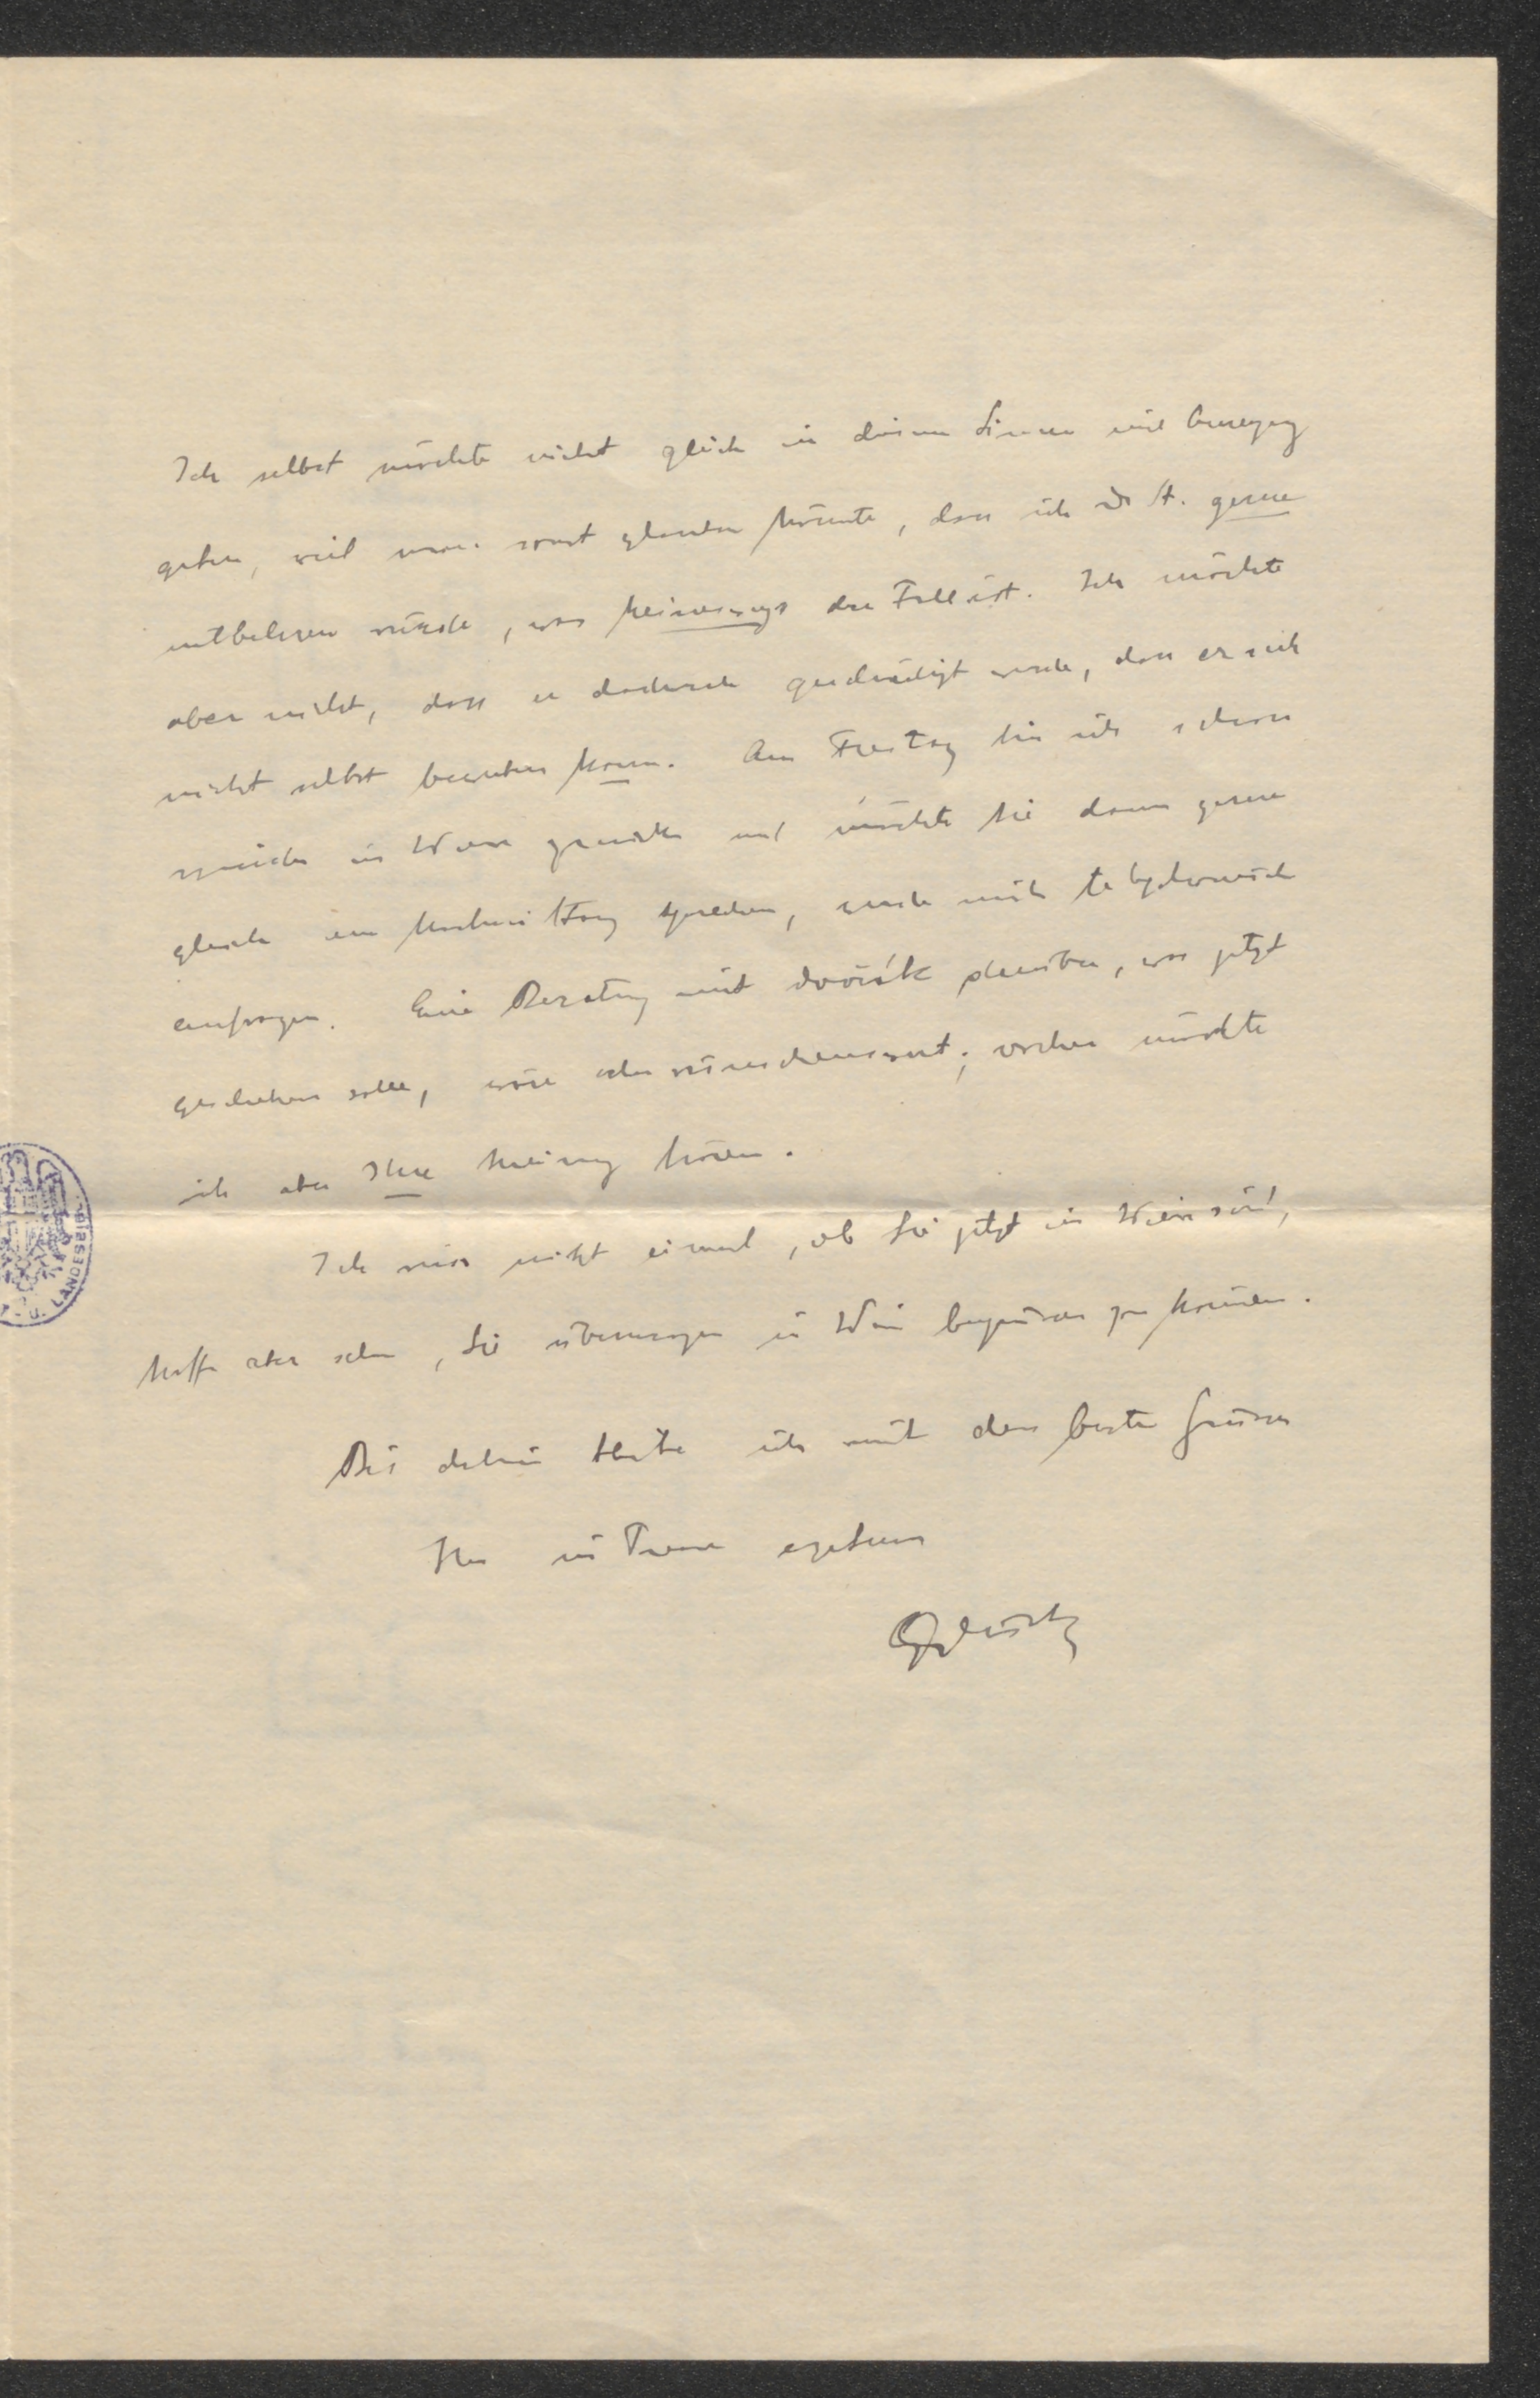 Ich selbst möchte nicht gleich in diesem Sinne eine Anregung
geben, weil man sonst glauben könnte, dass ich Dr St. gerne
entbehren würde, was keineswegs der Fall ist. Ich möchte
aber nicht, dass er dadurch geschädigt werde, dass er sich
nicht selbst bewerben kann. Am Freitag bin ich schon
wieder in Wien zurück und möchte Sie dann gerne
gleich am Nachmittag sprechen, werde mich telephonisch
anfragen. Eine Beratung mit Dvořák darüber, was jetzt
geschehen solle, wäre sehr wünschenswert; vorher möchte
ich aber Ihre Meinung hören.
Ich weiss nicht einmal, ob Sie jetzt in Wien sind,
hoffe aber sehr, Sie übermorgen in Wien begrüssen zu können.
Bis dahin bleibe ich mit den besten Grüssen
Ihr in Treue ergebener
U. LANDESBIB